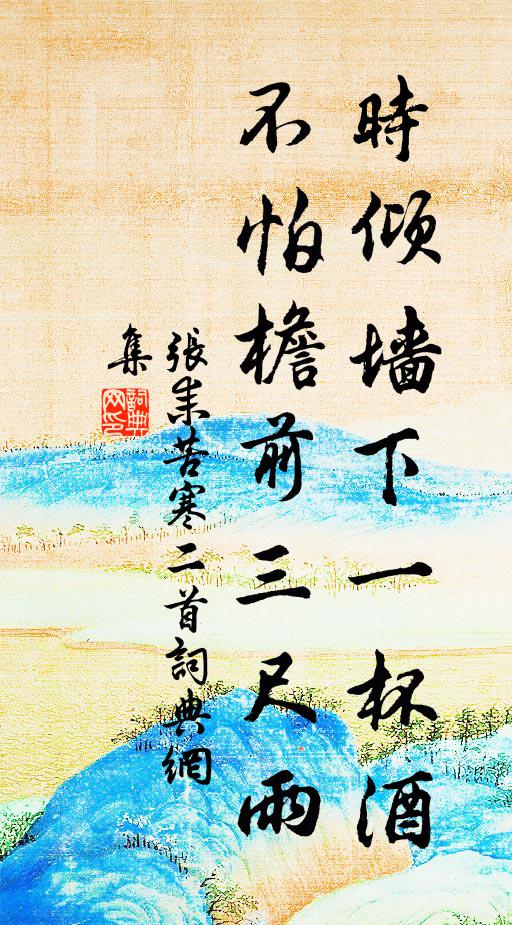 時倾墙下一杯酒
不怕檐前三尺雨
張耒苦寒二首詞典網
集
詞典網印